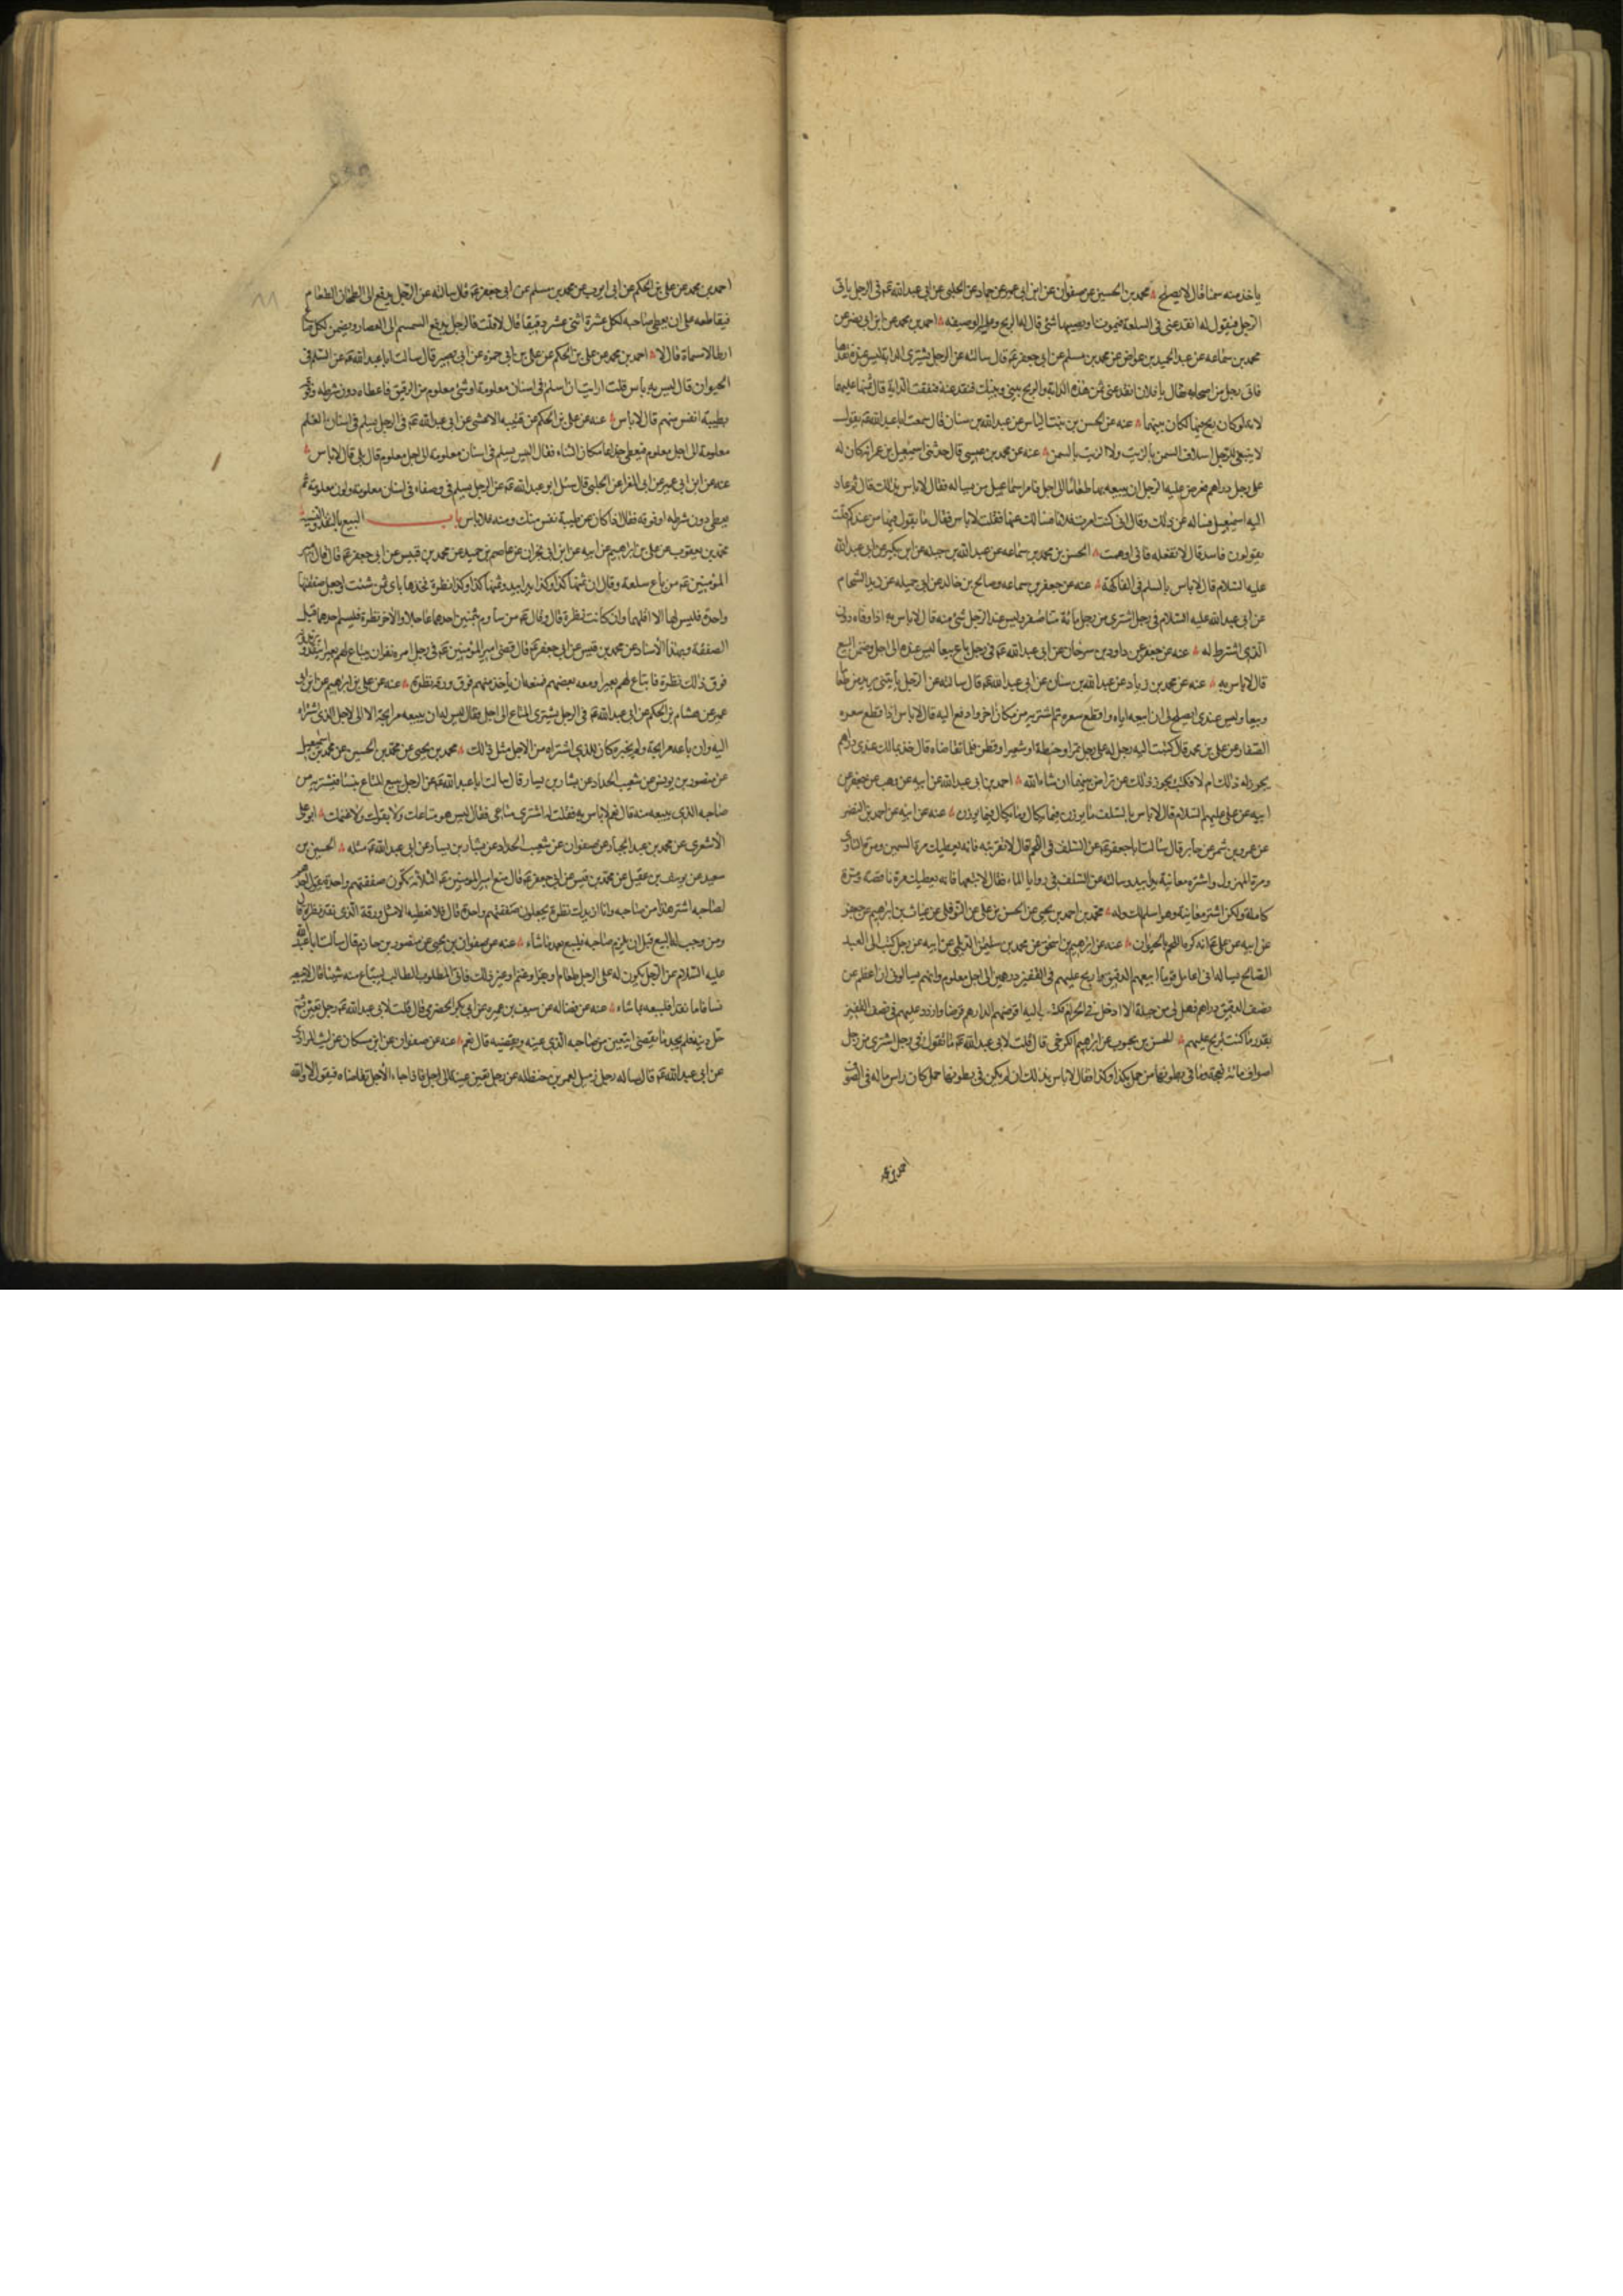 ياخذ منه سمنا قال لا يصلح محمد بن الحسين عن صفوان عن ابن ابى عمير عن حماد عن الحلبى عن ابى عبد الله ع‍ فى الرجل ياتى
الرجل فيقول له انقد عنى فى السلعة فتموت او يصيبها شئ قال له الربح وعليه الوضيعه احمد بن محمد عن ابن ابى نصر عن
محمد بن سماعه عن عبد الحميد بن عواض عن محمد بن مسلم عن ابى جعفر ع‍ قال سالته عن الرجل يشترى الدابة ليس عنده نقدها
فاتى رجل من اصحابه فقال يا فلان انقد عنى ثمن هذه الدابة والربح بينى وبينك فنقد عنه فنفقت الدابة قال ثمنها عليهما
لانه لو كان ربح فيها لكان بينهما عنه عن الحسن بن بنت الياس عن عبد الله بن سنان قال سمعت ابا عبد الله ع‍ يقول
لا ينبغى للرجل اسلاف السمن بالزيت ولا الزيت بالسمن عنه عن محمد بن عيسى قال حدثنى اسمعيل بن عمر انه كان له
على رجل دراهم فعرض عليه الرجل ان يبيعه بها طعاما الى اجل فامر اسماعيل من يساله فقال لا باس بذلك قال ثم عاد
اليه اسمعيل فساله عن ذلك وقال انى كنت امرت فلانا فسالك عنها فقلت لا باس فقال ما يقول فيها من عندكم قلت
يقولون فاسد قال لا تفعله فانى اوهمت الحسن بن محمد بن سماعه عن عبد الله بن جبله عن ابن بكير عن ابى عبد الله
عليه السلام قال لا باس بالسلم فى الفاكهة عنه عن جعفر بن سماعه وصالح بن خالد عن ابى جميله عن زيد الشحام
عن ابى عبد الله عليه السلام فى رجل اشترى من رجل مائة منا صفر وليس عند الرجل شئ منه قال لا باس به اذا وفاه دون
الذى اشترط له عنه عن جعفر عن داود بن سرحان عن ابى عبد الله ع‍ فى رجل باع بيعا ليس عنده الى اجل وضمن البيع
قال لا باس به عنه عن محمد بن زياد عن عبد الله بن سنان عن ابى عبد الله ع‍ قال سالته عن الرجل ياتينى يريد منى طعاما
وبيعا وليس عندى ايصلح لى ان ابيعه اياه واقطع سعره ثم اشتريه من مكان اخر وادفع اليه قال لا باس اذا قطع سعره
الصفار عن على بن محمد قال كتبت اليه رجل له على رجل تمر او حنطة او شعير او قطن فلما تقاضاه قال خذ بما لك عندى دراهم
يجوز له ذلك ام لا فكتب يجوز ذلك عن تراض منهما ان شاء الله احمد بن ابى عبد الله عن ابيه عن وهب عن جعفر عن
ابيه عن على عليهم السلام قال لا باس بالسلف ما يوزن فيما يكال وما يكال فيما يوزن عنه عن ابيه عن احمد بن النضر
عن عمرو بن شمر عن جابر قال سالت ابا جعفر ع‍ عن السلف فى اللحم قال لا تقربنه فانه يعطيك مرة السمين ومرة التاوى
ومرة المهزول واشتره معاينة يدا بيد وسالته عن السلف فى روايا الماء فقال لا تبعها فانه يعطيك مرة ناقصة ومرة
كاملة ولكن اشتره معاينة وهو اسلم لك وله محمد بن احمد بن يحيى عن الحسن بن على عن النوفلى عن غياث بن ابراهيم عن جعفر
عن ابيه عن على ع‍ انه كره اللحم بالحيوان عنه عن ابراهيم بن اسحق عن محمد بن سليمن الديلمى عن ابيه عن رجل كتب الى العبد
الصالح يساله انى اعامل قوما ابيعهم الدقيق اربح عليهم فى القفيز درهمين الى اجل معلوم وانهم يسالونى ان اعطيهم عن
نصف الدقيق دراهم فهل لى من حيلة الا ادخل فى الحرام فكتب اليه اقرضهم الدراهم قرضا وازدد عليهم فى نصف القفيز
بقدر ما كنت تربح عليهم الحسن بن محبوب عن ابراهيم الكرخى قال قلت لابى عبد الله ع‍ ما تقول فى رجل اشترى من رجل
اصواف مائة نعجة وما فى بطونها من حمل بكذا وكذا فقال لا باس بذلك ان لم يكن فى بطونها حمل كان راس ماله فى الصوف
احمد بن محمد
احمد بن محمد عن على بن الحكم عن ابى ايوب عن محمد بن مسلم عن ابى جعفر ع‍ قال سالته عن الرجل يدفع الى الطحان الطعام
فيقاطعه على ان يعطى صاحبه لكل عشرة اثنى عشر دقيقا قال لا قلت فالرجل يدفع السمسم الى العصار ويضمن لكل صاع
ارطالا مسماة قال لا احمد بن محمد عن على بن الحكم عن على بن ابى حمزه عن ابى بصير قال سالت ابا عبد الله ع‍ عن السلم فى
الحيوان قال ليس به باس قلت ارايت ان اسلم فى اسنان معلومة او شئ معلوم من الرقيق فاعطاه دون شرطه وفوقه
بطيبة انفس منهم قال لا باس عنه عن على بن الحكم عن قتيبه الاعشى عن ابى عبد الله ع‍ فى الرجل يسلم فى اسنان الغنم
معلومة الى اجل معلوم فيعطى جذاعا مكان الثناء فقال اليس يسلم فى اسنان معلومة الى اجل معلوم قال بلى قال لا باس
عنه عن ابن ابى عمير عن ابى المغرا عن الحلبى قال سئل ابو عبد الله ع‍ عن الرجل يسلم فى وصفاء فى اسنان معلومة ولون معلومة ثم
يعطى دون شرطه او فوقه فقال اذا كان عن طيبة نفس منك ومنه فلا باس باب البيع بالنقد والنسية
محمد بن يعقوب عن على بن ابراهيم عن ابيه عن ابن ابى نجران عن عاصم بن حميد عن محمد بن قيس عن ابى جعفر ع‍ قال قال امير
المؤمنين ع‍ من باع سلعة وقال ان ثمنها كذا وكذا يدا بيد وثمنها كذا وكذا نظرة فخذها باى ثمن شئت وجعل صفقتها
واحدة فليس لها الا اقلهما وان كانت نظرة قال وقال ع‍ من ساوم بثمنين احدهما عاجلا والاخر نظرة فليسم احدهما قبل
الصفقة وبهذا الاسناد عن محمد بن قيس عن ابى جعفر ع‍ قال قضى امير المؤمنين ع‍ فى رجل امره نفر ان يبتاع لهم بعيرا بنقد
فوق ذلك نظرة فابتاع لهم بعيرا ومعه بعضهم فمنعه ان ياخذ منهم فوق ورقه نظرة عنه عن على بن ابراهيم عن ابن ابى
عمير عن هشام بن الحكم عن ابى عبد الله ع‍ فى الرجل يشترى المتاع الى اجل فقال ليس له ان يبيعه مرابحة الا الى الاجل الذى اشتراه
اليه وان باعه مرابحة ولم يخبره كان للذى اشتراه من الاجل مثل ذلك محمد بن يحيى عن محمد بن الحسين عن محمد بن اسمعيل
عن منصور بن يونس عن شعيب الحداد عن بشار بن يسار قال سالت ابا عبد الله ع‍ عن الرجل يبيع المتاع بنسا فيشتريه من
صاحبه الذى يبيعه منه قال نعم لا باس به فقلت له اشترى متاعى فقال ليس هو متاعك ولا بقرك ولا غنمك ابو على
الاشعرى عن محمد بن عبد الجبار عن صفوان عن شعيب الحداد عن بشار بن يسار عن ابى عبد الله ع‍ مثله الحسين بن
سعيد عن يوسف بن عقيل عن محمد بن قيس عن ابى جعفر ع‍ قال منع امير المؤمنين ع‍ الثلاثة تكون صفقتهم واحدة يقول احدهم
لصاحبه اشتر هذا من صاحبه وانا ازيدك نظرة يجعلون صفقتهم واحدة قال فلا تعطيه الا مثل ورقه الذى نقد نظرة قال
ومن وجب له البيع قبل ان يلزم صاحبه فليبع بعد ما شاء عنه عن صفوان بن يحيى عن منصور بن حازم قال سالت ابا عبد الله
عليه السلام عن الرجل يكون له على الرجل طعام او بقر او غنم او غير ذلك فاتى المطلوب الطالب ليبتاع منه شيئا قال لا يبيعه
نسا فاما نقدا فليبعه بما شاء عنه عن فضاله عن سيف بن عميره عن ابى بكر الحضرمى قال قلت لابى عبد الله ع‍ رجل تعين ثم
حل دينه فلم يجد ما يقضى ايتعين من صاحبه الذى عينه ويقضيه قال نعم عنه عن صفوان عن ابن مسكان عن ليث المرادى
عن ابى عبد الله ع‍ قال ساله رجل زميل لعمر بن حنظله عن رجل تعين عينة الى اجل فاذا جاء الاجل تقاضاه فيقول لا والله